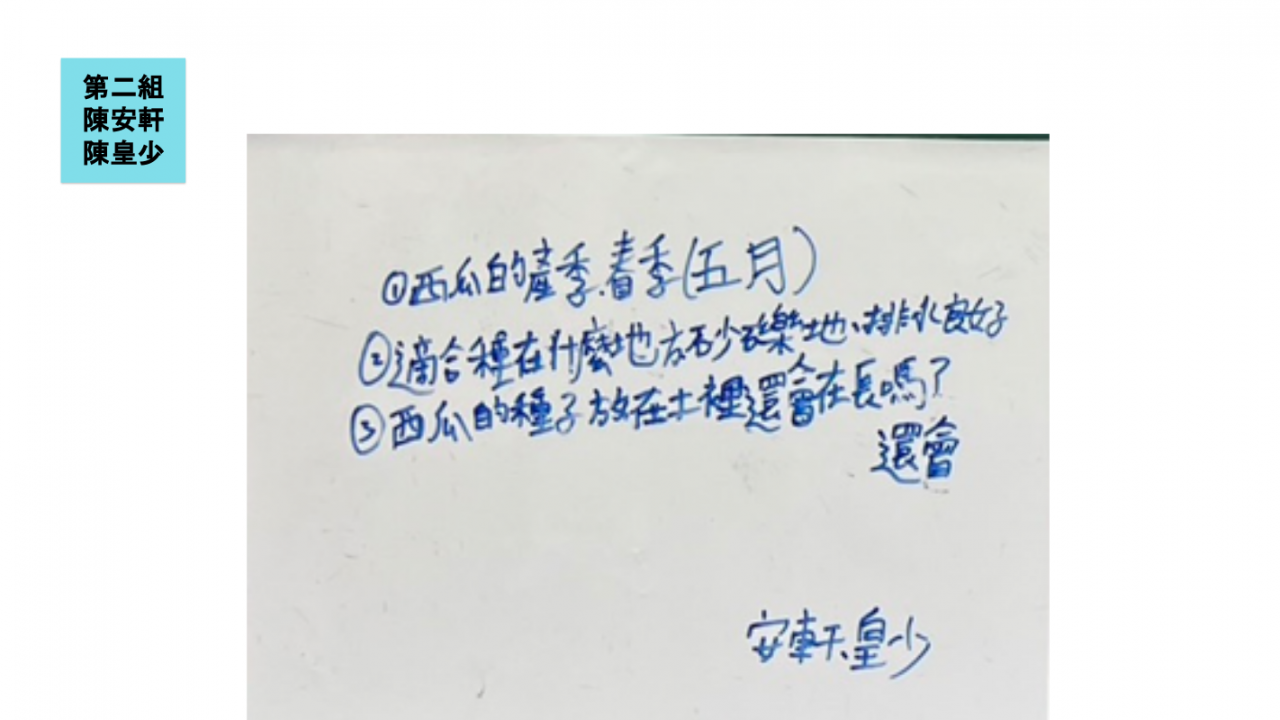 第二組
陳安軒
陳皇少
①西瓜的產季.春季(五月)
②適合種在什麼地方砂礫土地、排水良好
③西瓜的種子放在土裡還會在長嗎?
還會
安軒、皇少